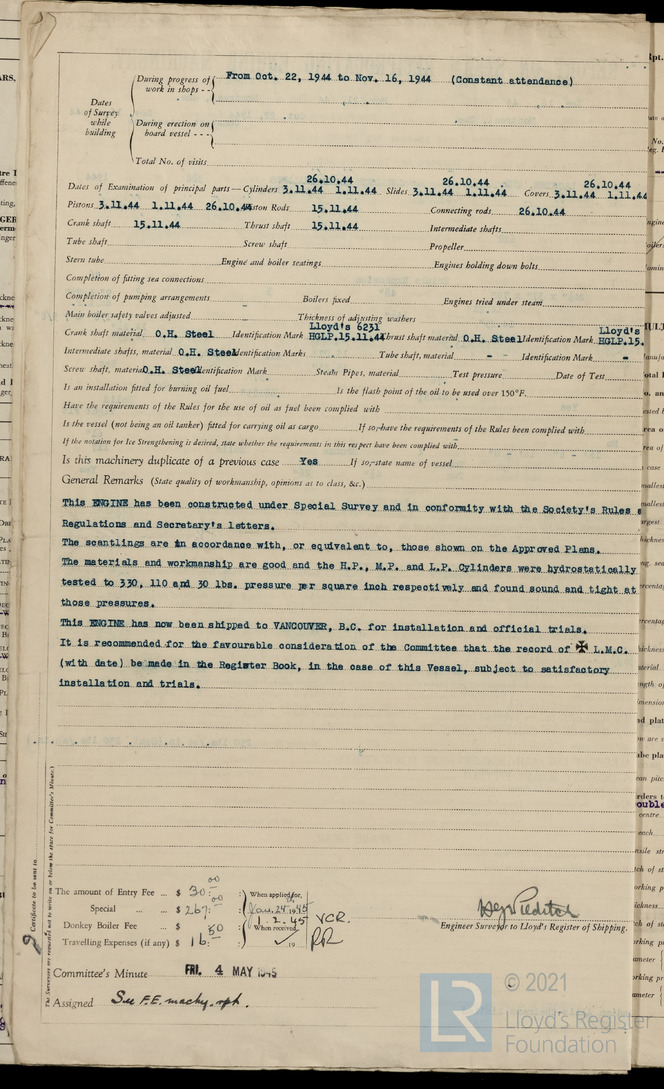 During progress of work in shops - - From Oct. 22, 1944 to Nov. 16, 1944 (Constant attendance)
Dates of Survey while building
During erection on board vessel - - -
Total No. of visits
26.10.44 26.10.44 26.10.44
Dates of Examination of principal parts—Cylinders 3.11.44 1.11.44 Slides 3.11.44 1.11.44 Covers 3.11.44 1.11.44
Pistons 3.11.44 1.11.44 26.10.44 Piston Rods 15.11.44 Connecting rods 26.10.44
Crank shaft 15.11.44 Thrust shaft 15.11.44 Intermediate shafts
Tube shaft Screw shaft Propeller
Stern tube Engine and boiler seatings Engines holding down bolts
Completion of fitting sea connections
Completion of pumping arrangements Boilers fixed Engines tried under steam
Main boiler safety valves adjusted Thickness of adjusting washers
Lloyd's 6231 Lloyd's
Crank shaft material O.H. Steel Identification Mark HGLP.15.11.44 Thrust shaft material O.H. Steel Identification Mark HGLP.15.
Intermediate shafts, material O.H. Steel Identification Marks Tube shaft, material - - Identification Mark -
Screw shaft, material O.H. Steel Identification Mark Steam Pipes, material Test pressure Date of Test
Is an installation fitted for burning oil fuel Is the flash point of the oil to be used over 150°F.
Have the requirements of the Rules for the use of oil as fuel been complied with
Is the vessel (not being an oil tanker) fitted for carrying oil as cargo If so, have the requirements of the Rules been complied with
If the notation for Ice Strengthening is desired, state whether the requirements in this respect have been complied with
Is this machinery duplicate of a previous case Yes If so, state name of vessel
General Remarks (State quality of workmanship, opinions as to class, &c.)
This ENGINE has been constructed under Special Survey and in conformity with the Society's Rules &
Regulations and Secretary's letters.
The scantlings are in accordance with, or equivalent to, those shown on the Approved Plans.
The materials and workmanship are good and the H.P., M.P. and L.P. Cylinders were hydrostatically
tested to 330, 110 and 30 lbs. pressure per square inch respectively and found sound and tight at
those pressures.
This ENGINE has now been shipped to VANCOUVER, B.C. for installation and official trials.
It is recommended for the favourable consideration of the Committee that the record of ✠ L.M.C.
(with date) be made in the Register Book, in the case of this Vessel, subject to satisfactory
installation and trials.
Certificate to be sent to
The Surveyors are requested not to write on or below the space for Committee's Minute.
The amount of Entry Fee ... $ 30:00 When applied for,
Special ... ... $ 267:00 Jan. 24 1945
Donkey Boiler Fee $ 1.2.45 VCR.
Travelling Expenses (if any) $ 16:50 When received, 19 RR
Engineer Surveyor to Lloyd's Register of Shipping.
Committee's Minute FRI. 4 MAY 1945
Assigned See F.E. machy. rpt.
LR © 2021
Lloyd's Register
Foundation